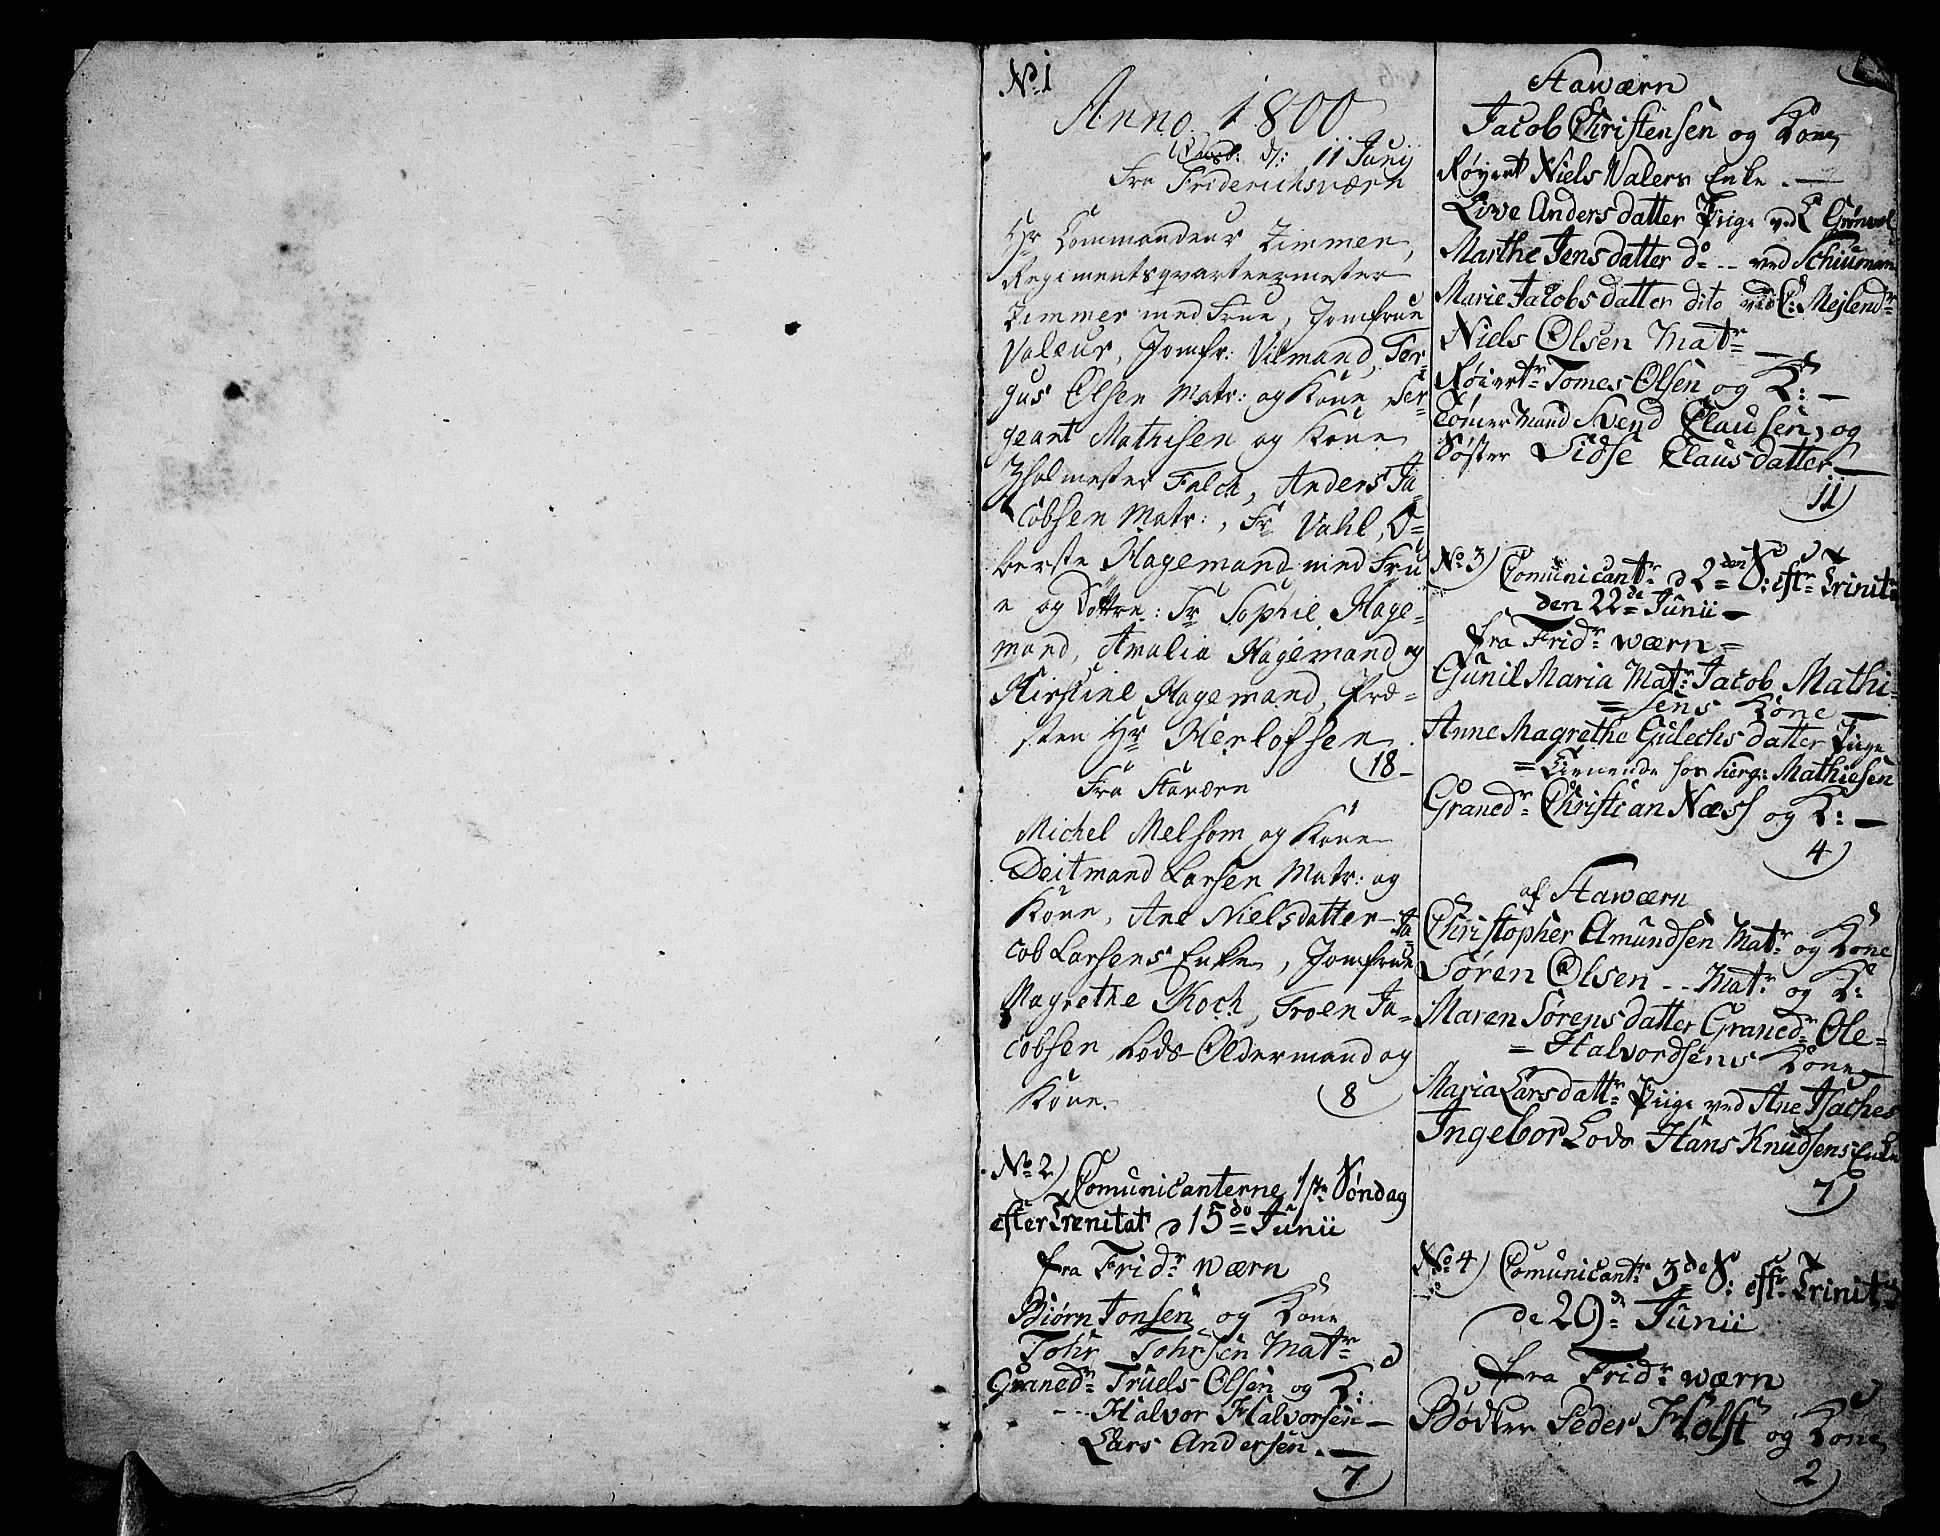 No 1
Anno 1800
d: 11 Junij
Fra Friderichsværn
Hr Commandeur Zimmer,
Regimentsqvarteermester
Zimmer med Frue, Jomfrue
Valeur, Jomfr: Vilmand, Fer-
gus Olsen Matr: og Kone Ser-
geant Mathisen og Kone
Falch, Anders Ja-
cobsen Matr:, Fr Vahl, O-
berste Hagemand med Fru
e og Döttre: Fr Sophie Hage-
mand, Amalia Hagemand og
Kirstine Hagemand, Præ-
sten Hr Herlofsen
18
Fra Staværn
Michel Melsom og Kone
Deitmand Larsen Matr: og
Kone, Ane Nielsdatter Ja-
cob Larsens Enke, Jomfrue
Magrethe Koch, Troen Ja-
cobsen Lods-Oldermand og
Kone.
8
No 2) Comunicanterne 1ste Søndag
efter Trenitat d 15de Junii
fra Fridr wærn
Biørn Jonsen og Kone
Tohr Tohrsen Matr
Granedr Truels Olsen og K:
--- Halvor Halvorsen
Lars Andersen.
7
Stawærn
Jacob Christensen og Kone
Røyert Niels Valers Enke.
Live Anders datter Piige ved
Marthe Jens datter do -- ved Schiuman
Marie Jacobs datter dito ved Mejlendr
Niels Olsen Matr
Røiertr Tomes Olsen og K:
Tømermand Svend Clausen, og
Søster Sidse Clausdatter
11
No 3) Comunicantr d 2den S: eftr Trinit
den 22de Junii
fra Fridr wærn
Gunil Maria Matr Jacob Mathi-
sens Kone
Anne Magrethe Gulechs datter Piige
Tienende hos Serg: Mathiesen
Granedr Christian Næss og K:
4
af Stawærn
Christopher Amundsen Matr og Kone
Søren Olsen -- Matr og K:
Maren Sørens datter Granedr Ole
Halvordsens Kone
Maria Larsdattr Piige ved Ane Isaches
Ingebor Lods Hans Knudsens Enke
7
No 4) Comunicantr 3de S: eftr Trinit
de 29de Junii
fra Fridr wærn
Bødker Peder Holst og Kone
2